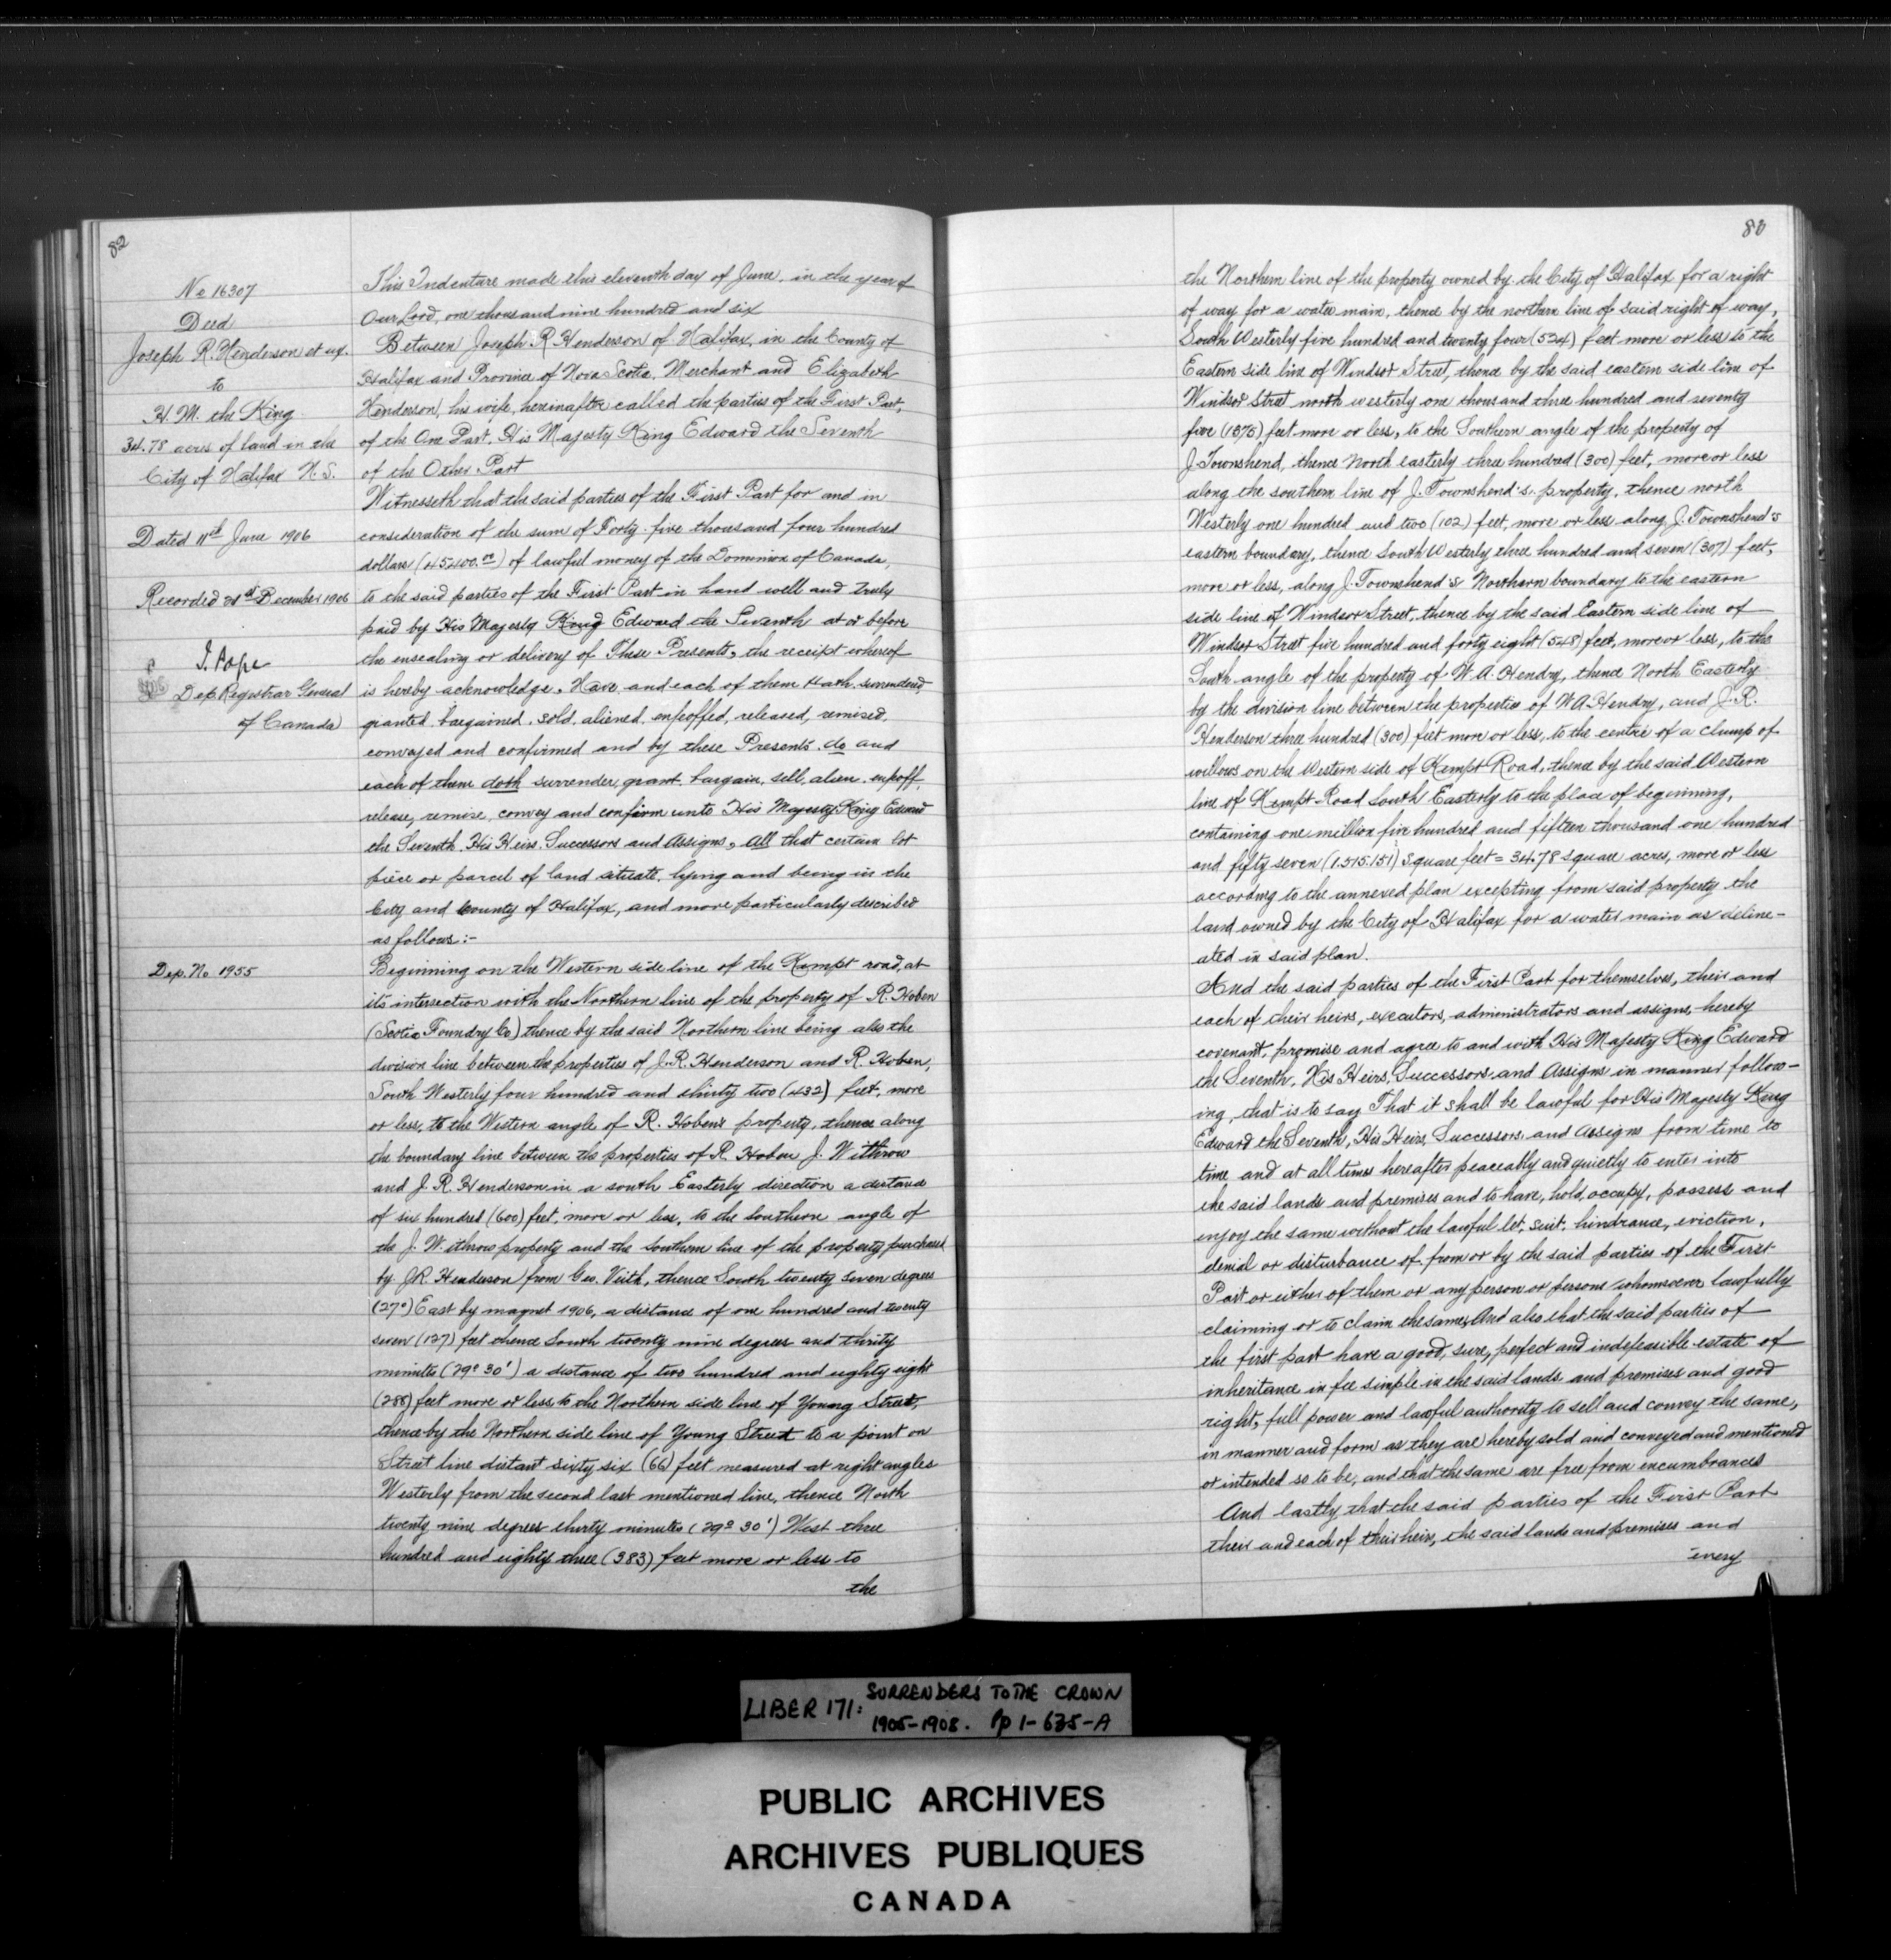 82
No 16307
Deed
Joseph R. Henderson et ux.
to
H. M. the King
34.78 acres of land in the
City of Halifax N. S.
Dated 11th June 1906
Recorded 21st December 1906
J. Pope
Dep Registrar General
of Canada
Dep. No 1955
This Indenture made this eleventh day of June, in the year of
Our Lord, one thousand nine hundred and six
Between Joseph R Henderson of Halifax, in the County of
Halifax and Province of Nova Scotia, Merchant and Elizabeth
Henderson, his wife, hereinafter called the parties of the First Part,
of the One Part, His Majesty King Edward the Seventh
of the Other Part
Witnesseth that the said parties of the First Part for and in
consideration of the sum of Forty-five thousand four hundred
dollars (45400.00) of lawful money of the Dominion of Canada,
to the said parties of the First Part in hand well and truly
paid by His Majesty King Edward the Seventh at or before
the ensealing or delivery of These Presents, the receipt whereof
is hereby acknowledge, Have and each of them Hath surrendered
granted, bargained, sold, aliened, enfeoffed, released, remised,
conveyed and confirmed and by these Presents do and
each of them doth surrender, grant, bargain, sell, alien, enfeoff,
release, remise, convey and confirm unto His Majesty King Edward
the Seventh, His Heirs, Successors and Assigns, All that certain lot
piece or parcel of land situate, lying and being in the
City and County of Halifax, and more particularly described
as follows:-
Beginning on the Western side line of the Kempt road, at
its intersection with the Northern line of the property of R. Hoben
(Scotia Foundry Co) thence by the said Northern line being also the
division line between the properties of J. R. Henderson and R. Hoben,
South Westerly four hundred and thirty two (432) feet, more
or less, to the Western angle of R. Hobens property, thence along
the boundary line between the properties of R. Hoben J. Withrow
and J. R. Henderson in a south Easterly direction a distance
of six hundred (600) feet, more or less, to the Southern angle of
the J. Withrow property and the Southern line of the property purchased
by J.R. Henderson from Geo. Veith, thence South twenty seven degrees
(27°) East by magnet 1906, a distance of one hundred and twenty
seven (127) feet thence South twenty nine degrees and thrity
minutes (29° 30') a distance of two hundred and eighty eight
(288) feet more or less to the Northern side line of Young Street,
thence by the Northern side line of Young Street to a point on
Street line distant sixty six (66) feet measured at right angles
Westerly from the second last mentioned line, thence North
twenty nine degrees thirty minutes (29° 30') West three
hundred and eighty three (383) feet more or less to
the
80
the Northern line of the property owned by the City of Halifax for a right
of way for a water main, thence by the northern line of said right of way,
South Westerly five hundred and twenty four (524) feet more or less to the
Eastern side line of Windsor Street, thence by the said eastern side line of
Windsor Street north westerly one thousand three hundred and seventy
five (1375) feet more or less, to the Southern angle of the property of
J. Townshend, thence North easterly three hundred (300) feet, more or less
along the southern line of J. Townshend's property, thence north
Westerly one hundred and two (102) feet, more or less along J. Townshend's
eastern boundary, thence South Westerly three hundred and seven (307) feet,
more or less, along J. Townshend's Northern boundary to the eastern
side line of Windsor Street, thence by the said Eastern side line of
Windsor Street five hundred and forty eight (548) feet, more or less, to the
South angle of the property of W. A. Hendry, thence North Easterly
by the division line between the properties of W. A. Hendry, and J. R.
Henderson three hundred (300) feet more or less, to the centre of a clump of
willows on the Western side of Kempt Road, thence by the said Western
line of Kempt Road South Easterly to the place of beginning,
containing one million five hundred and fifteen thousand one hundred
and fifty seven (1.515.151) square feet = 34.78 square acres, more or less
according to the annexed plan excepting from said property the
land owned by the City of Halifax for a water main as deline-
ated in said plan.
And the said parties of the First Part for themselves, their and
each of their heirs, executors, administrators and assigns, hereby
covenant, promise and agree to and with His Majesty King Edward
the Seventh, His Heirs, Successors and Assigns in manner follow-
ing, that is to say That it shall be lawful for His Majesty King
Edward the Seventh, His Heirs, Successors and Assigns from time to
time and at all times hereafter peaceably and quietly to enter into
the said lands and premises and to have, hold, occupy, possess and
enjoy the same without the lawful let, suit, hindrance, eviction,
denial or disturbance of from or by the said parties of the First
Part or either of them or any person or persons whomsoever lawfully
claiming or to claim the same, And also that the said parties of
the first part have a good, sure, perfect and indefeasible estate of
inheritance in fee simple in the said lands and premises and good
right, full power and lawful authority to sell and convey the same,
in manner and form as they are hereby sold and conveyed and mentioned
or intended so to be, and that the same are free from encumbrances
And lastly that the said parties of the First Part
their and each of their heirs, the said lands and premises and
every
LIBER 171: SURRENDERS TO THE CROWN
1905-1908. Pp 1-635-A
PUBLIC ARCHIVES
ARCHIVES PUBLIQUES
CANADA